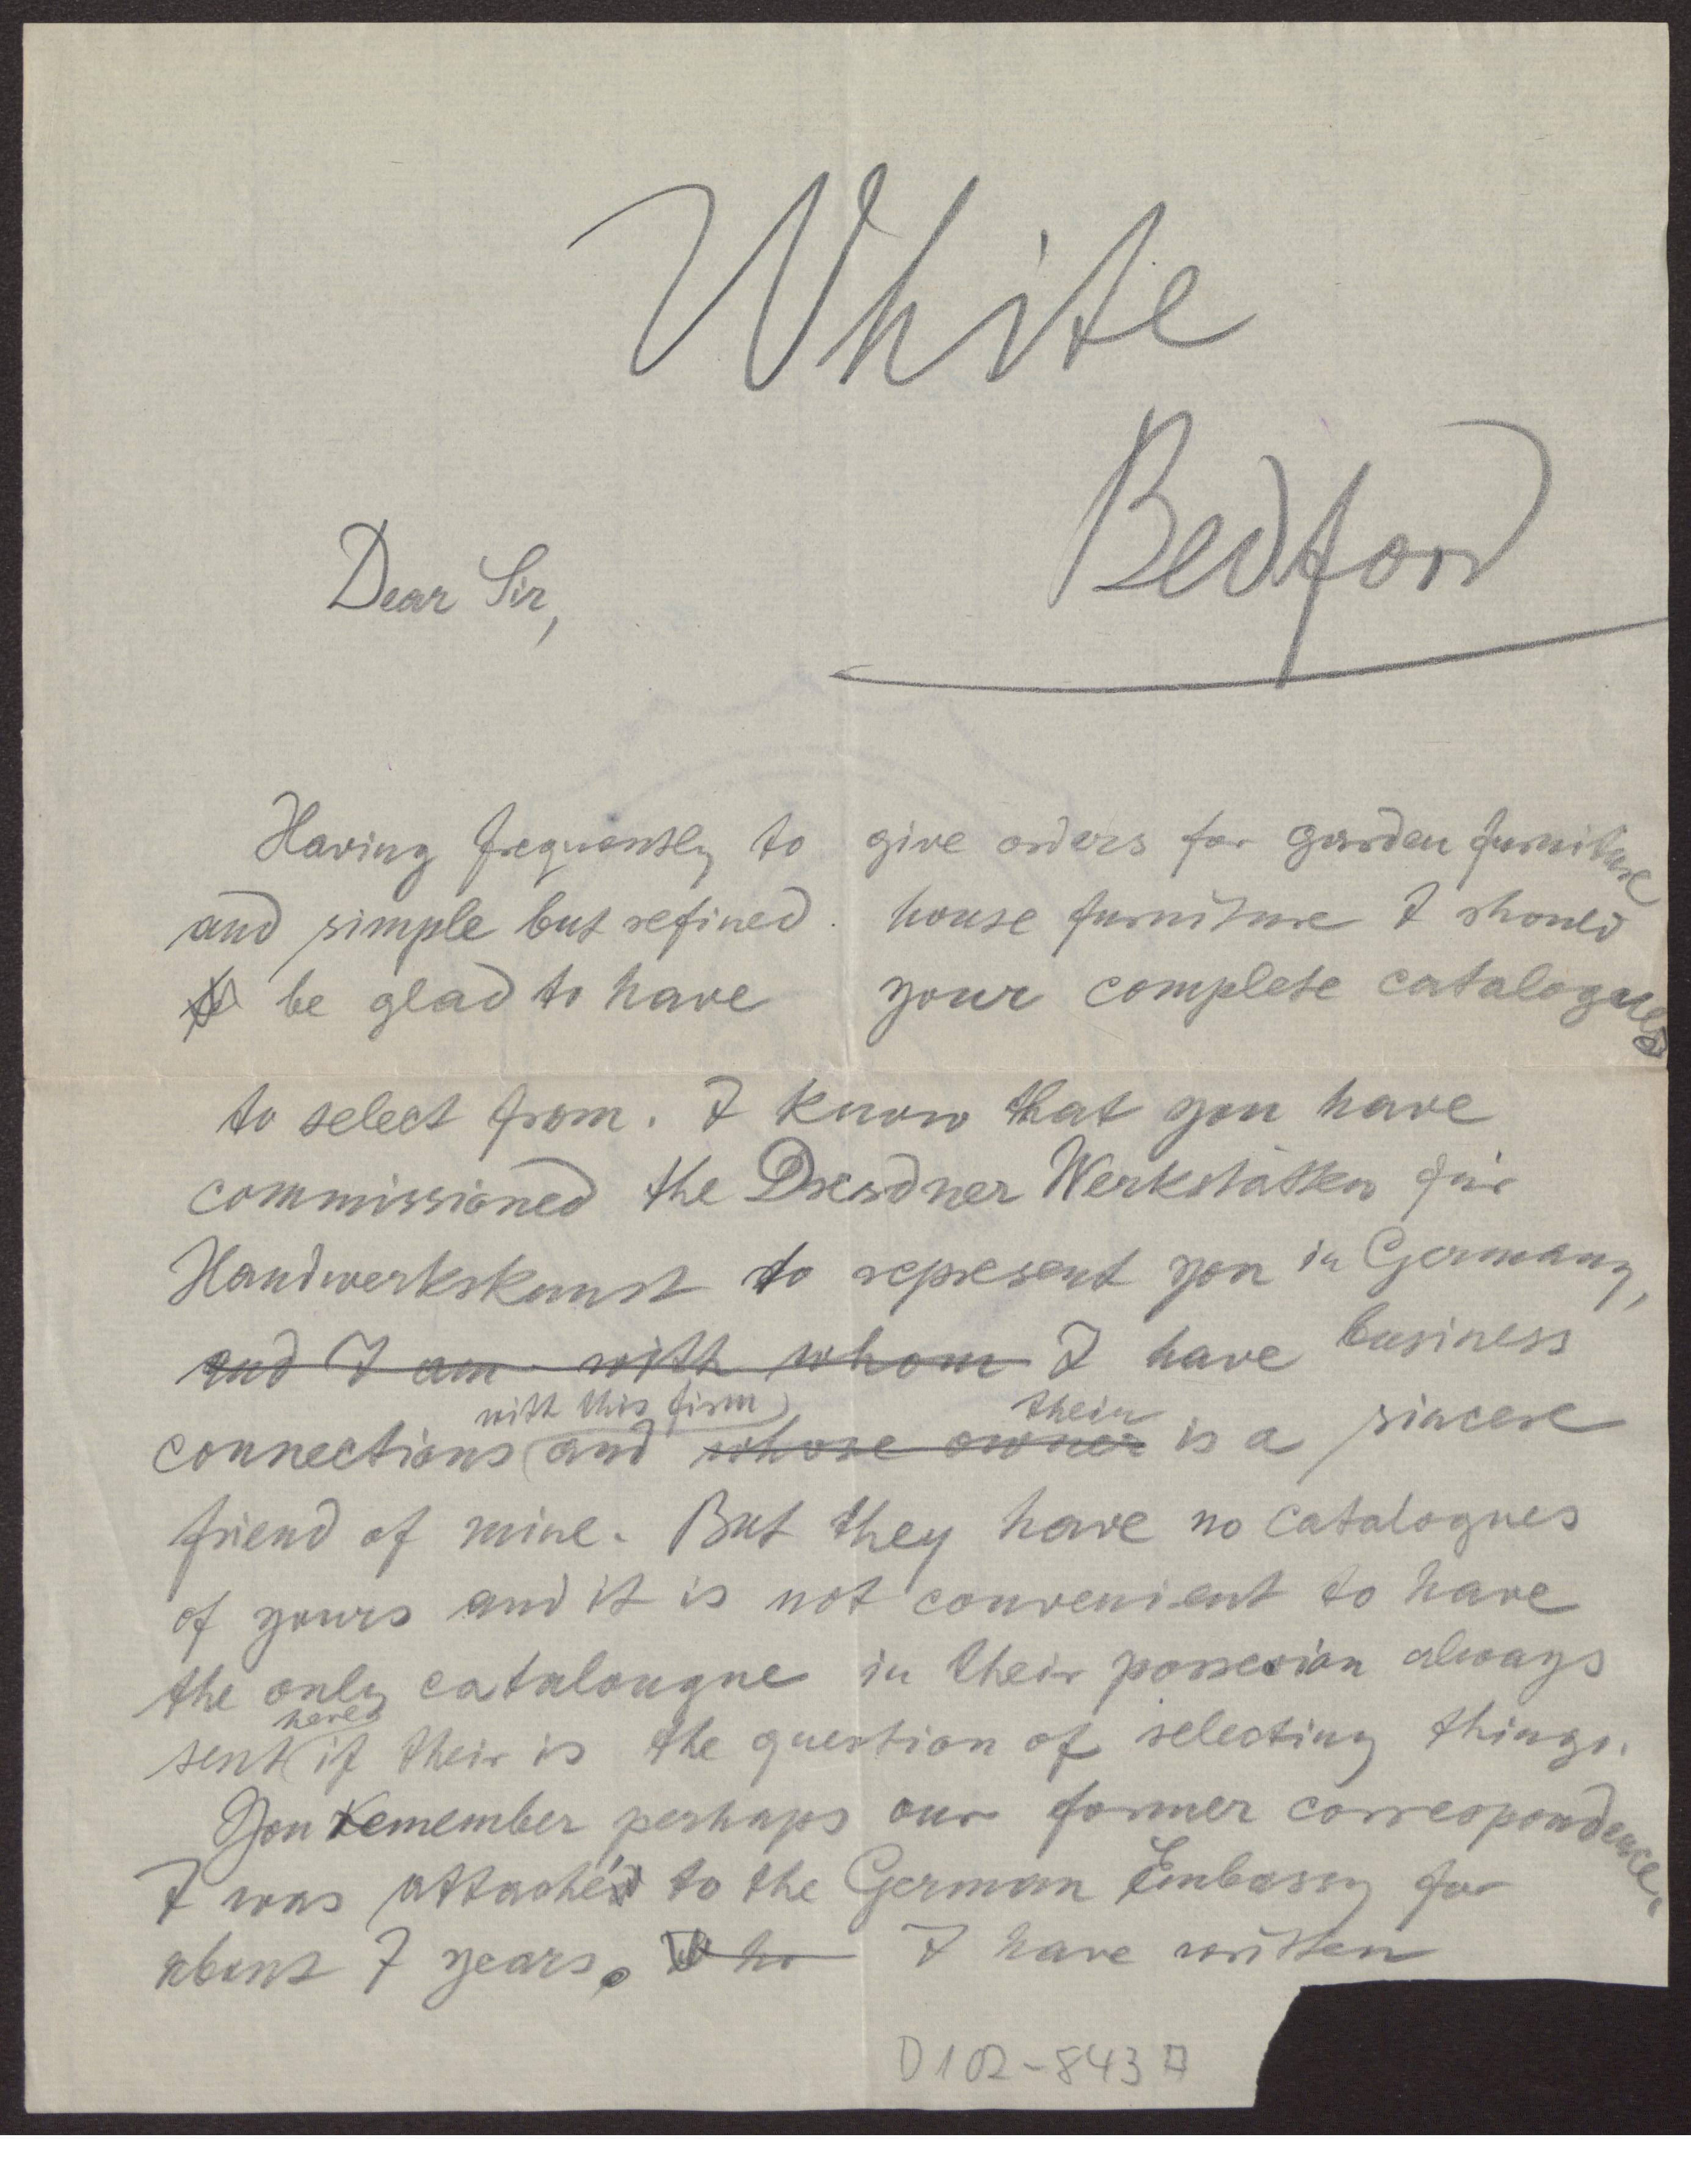 White
Bedford
Dear Sir,
Having frequently to give orders for garden furniture
and simple but refined house furniture I should
be glad to have your complete catalogues
to select from. I know that you have
commissioned the Dresdner Werkstätten für
Handwerkskunst to represent you in Germany,
and I am with whom I have business
with this firm their
connections and whose owner is a sincere
friend of mine. But they have no catalogues
of yours and it is not convenient to have
the only catalougne in their possesion always
here
sent if their is the question of selecting things.
You remember perhaps our former correspondence.
I was attaché to the German Embassy for
about 7 years. I have written
D102-843